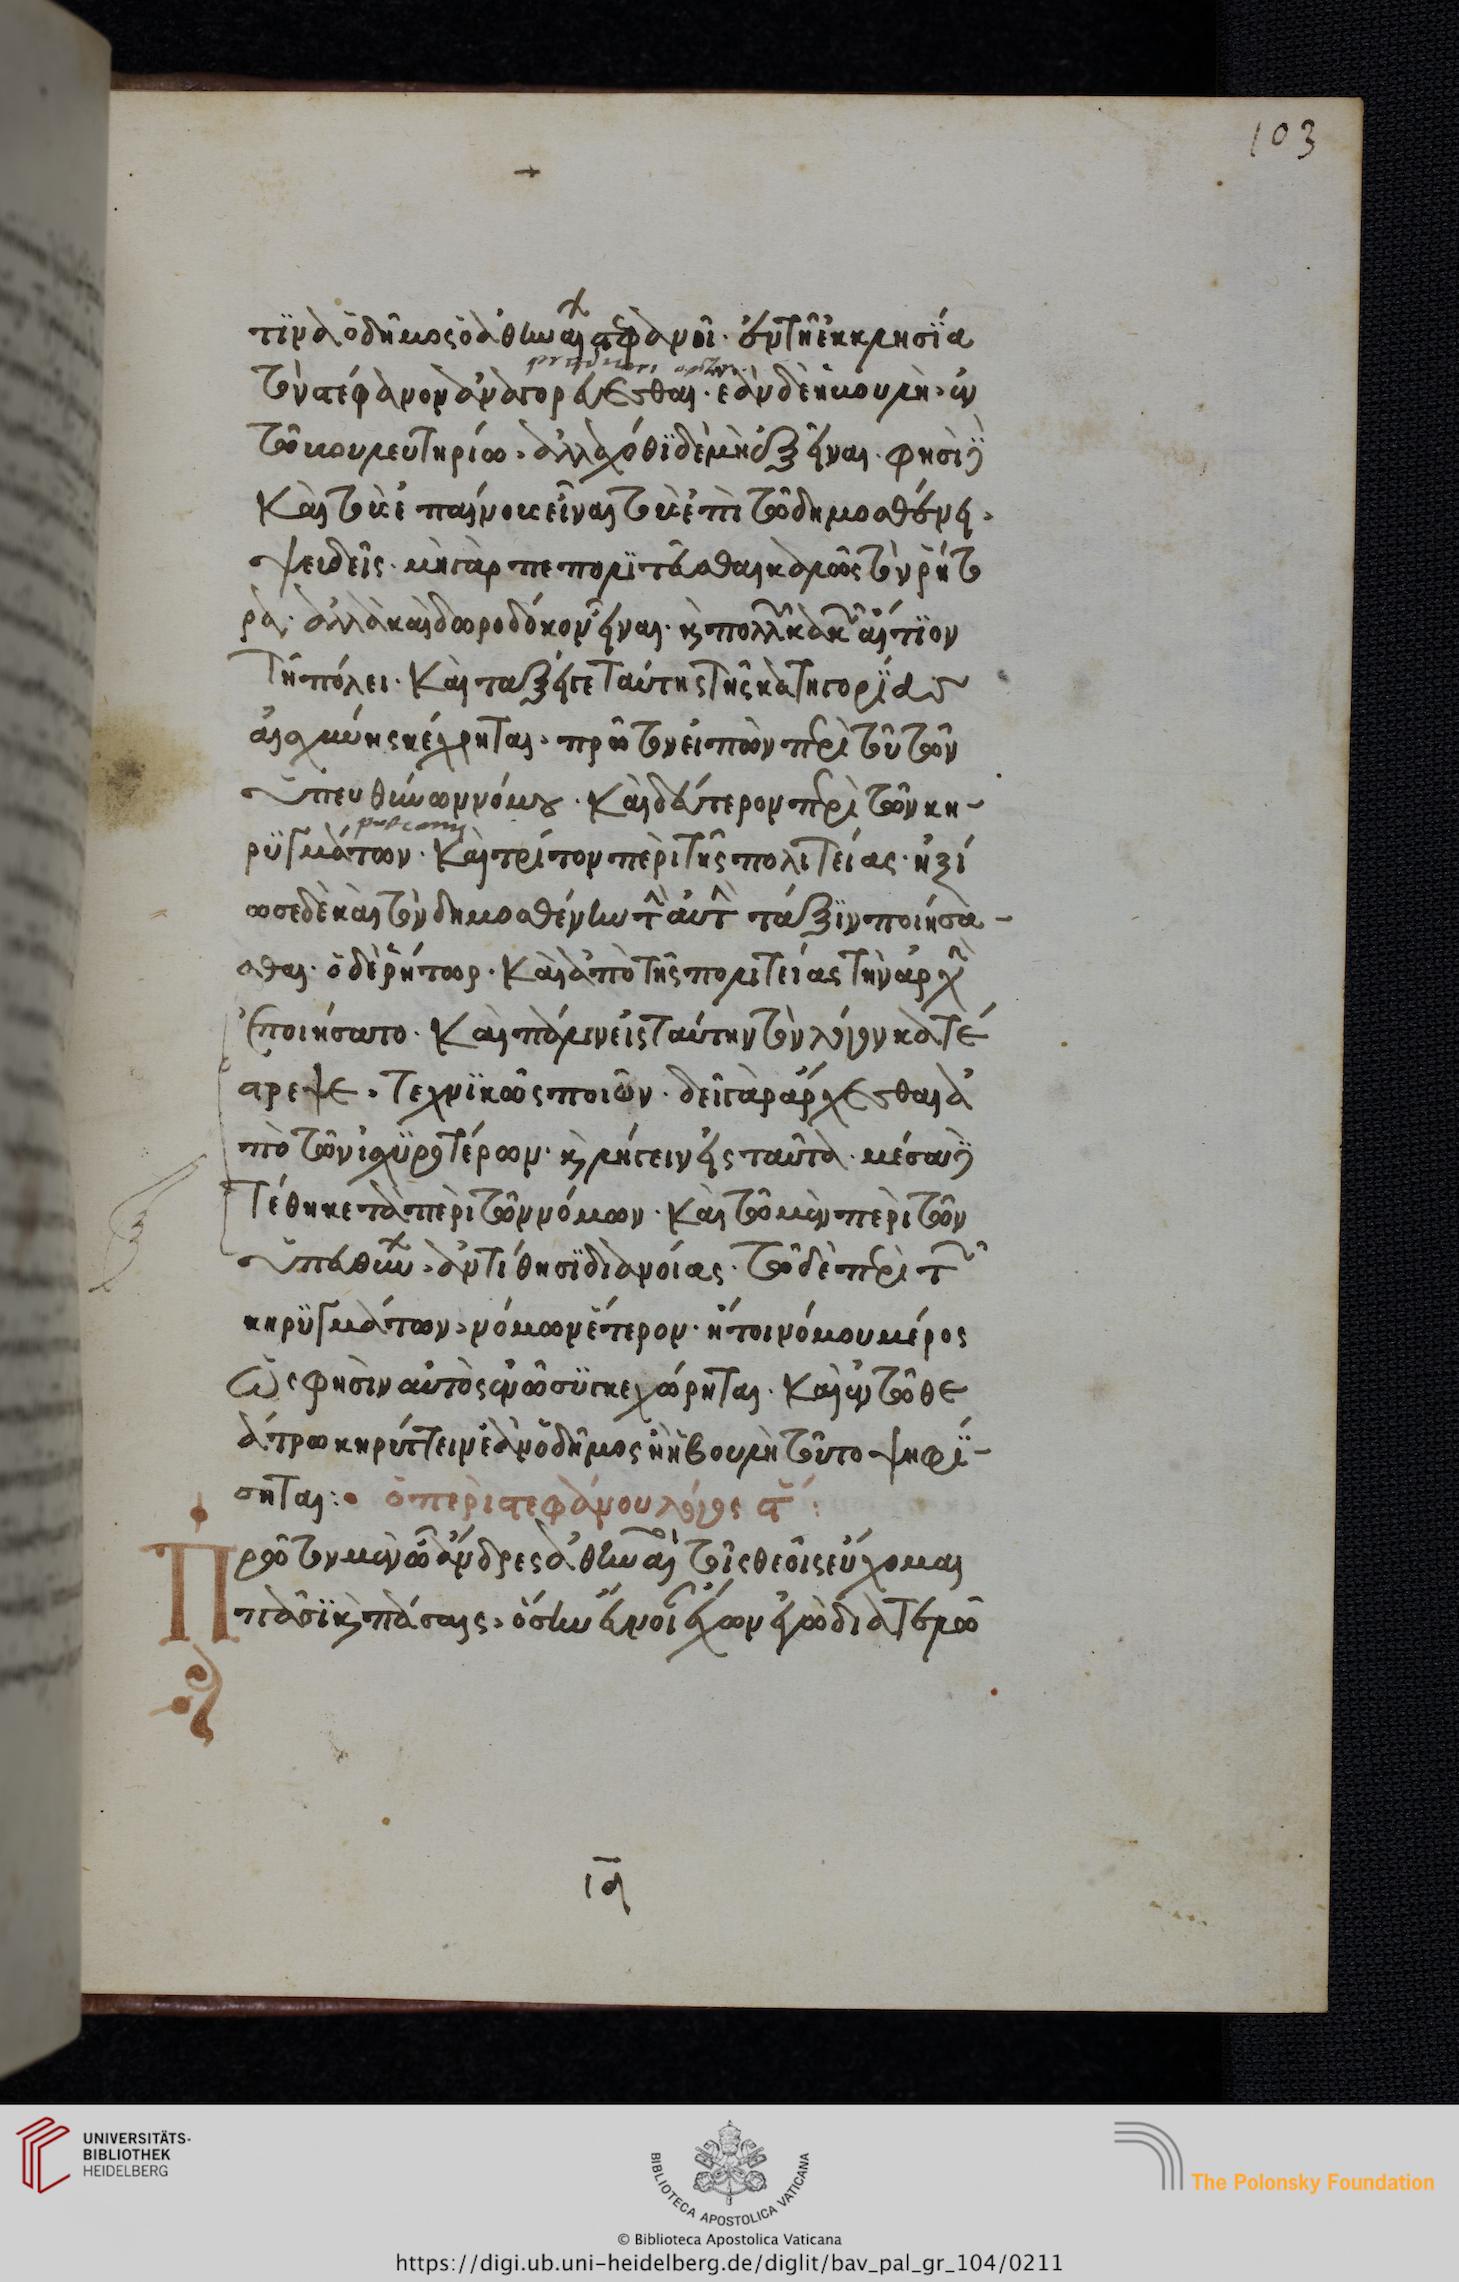 103
τινὰ ὁ δῆμος ὁ ἀθηναίων στεφανοῖ· ἐν τῇ ἐκκλησία
τὸν στέφανον ἀναγορεύεσθαι· ἐὰν δὲ ἡ βουλὴ, ἐν
τῶ βουλευτηρίω, ἀλλαχόθι δὲ μὴ ἐξεῖναι· φησὶ δὲ
καὶ τοὺς ἐπαίνους εἶναι τοὺς ἐπὶ τῶ δημοσθένει,
ψευδεῖς· μὴ γὰρ πεπολιτεῦσθαι καλῶς τὸν ῥήτο
ρα· ἀλλὰ καὶ δωροδόκον εἶναι· καὶ πολλῶν κακῶν αἴτιον
τῇ πόλει· καὶ τάξει γε ταύτης τῆς κατηγορίας
αἰσχίνης κέχρηται, πρῶτον εἰπὼν περὶ τοῦ τῶν
ὑπευθύνων νόμου· καὶ δεύτερον περὶ τῶν κη-
ρυγμάτων· καὶ τρίτον περὶ τῆς πολιτείας· ἠξί
ωσε δὲ καὶ τὸν δημοσθένην τὴν αὐτὴν τάξιν ποιήσα-
σθαι· ὁ δὲ ῥήτωρ· καὶ ἀπὸ τῆς πολιτείας τὴν ἀρχὴν
ἐποιήσατο· καὶ πάλιν εἰς ταύτην τὸν λόγον κατέ
στρεψε, τεχνικῶς ποιῶν· δεῖ γὰρ ἄρχεσθαι ἀ
πὸ τῶν ἰσχυροτέρων· καὶ λήγειν εἰς ταῦτα· μέσα δὲ
τέθηκε τὰ περὶ τῶν νόμων· καὶ τῶ μὲν περὶ τῶν
ὑπευθύνων, ἀντιτίθησι διανοίας· τῶ δὲ περὶ τῶν
κηρυγμάτων, νόμον ἕτερον· ἤτοι νόμου μέρος
ὥς φησιν αὐτὸς ἐν ᾧ συγκεχώρηται· καὶ ἐν τῶ θε
άτρω κηρύττειν ἐὰν ὁ δῆμος ἢ ἡ βουλὴ τοῦτο ψηφί-
σηται:
ὁ περὶ στεφάνου λόγος
Πρῶτον μὲν ὦ ἄνδρες ἀθηναῖοι τοῖς θεοῖς εὔχομαι
πᾶσι καὶ πάσαις, ὅσην εὔνοιαν ἔχων ἐγὼ διατελῶ
UNIVERSITÄTS-
BIBLIOTHEK
HEIDELBERG
BIBLIOTECA APOSTOLICA VATICANA
© Biblioteca Apostolica Vaticana
The Polonsky Foundation
https://digi.ub.uni-heidelberg.de/diglit/bav_pal_gr_104/0211